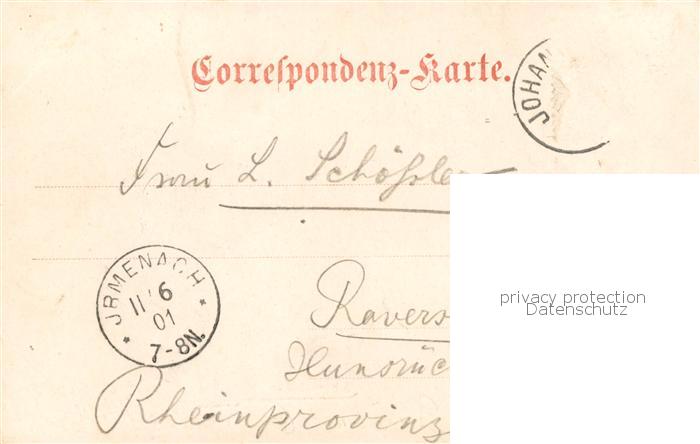 Correspondenz-Karte.
JOHAN
Frau L. Schößler
JRMENACH
11 6
01
7-8N.
Ravers
Hunsrück
Rheinprovinz
privacy protection
Datenschutz